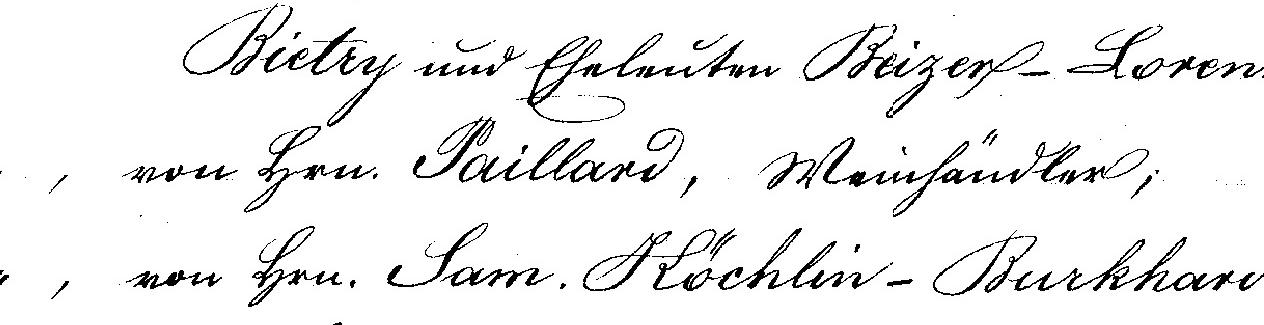 Bietry und Eheleuten Beizer - Loren
, von Hrn. Paillard, Weinhändler;
" , von Hrn. Sam. Köchlin - Burkhard